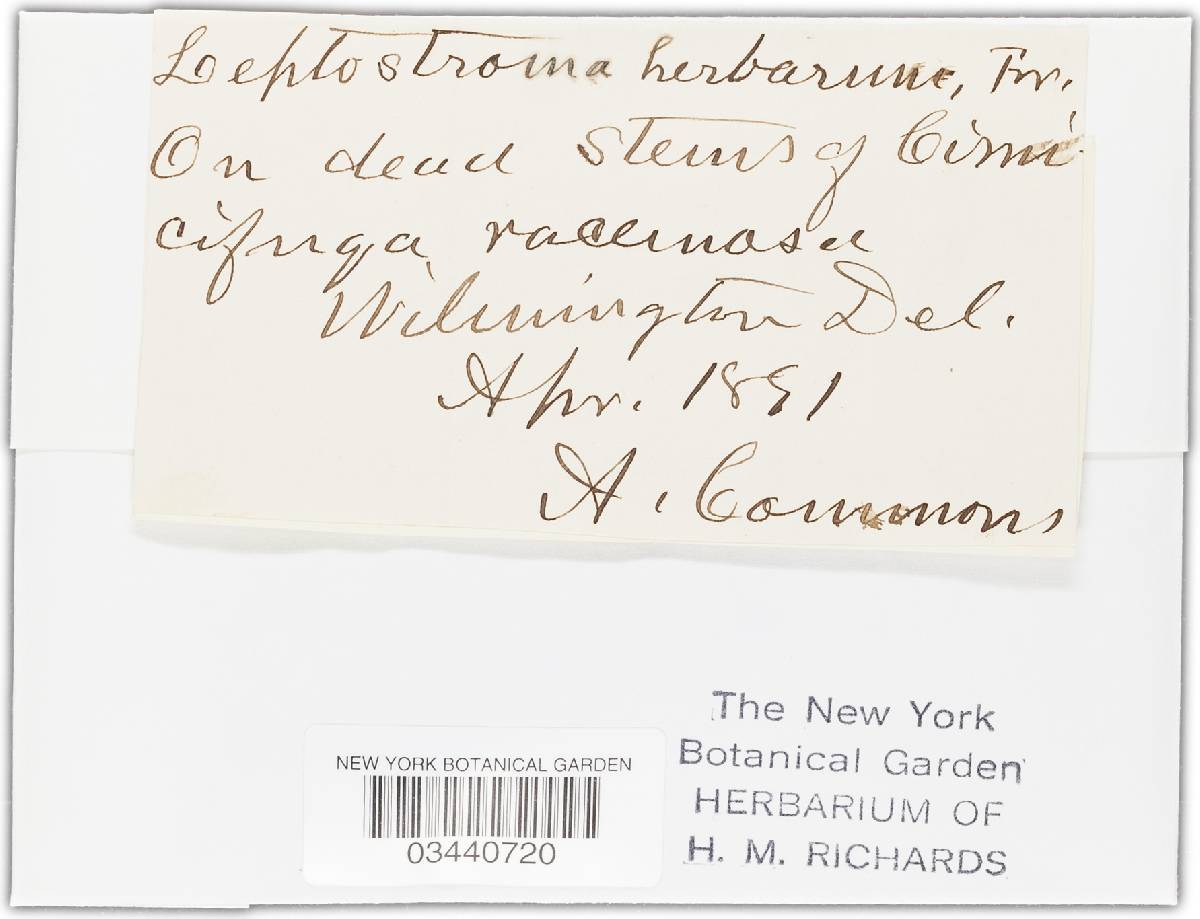 Leptostroma herbarum, Fr.
On dead stems of Cimi
cifuga racemosa
Wilmington Del.
Apr. 1891
A. Commons
The New York
Botanical Garden
HERBARIUM OF
H. M. RICHARDS
NEW YORK BOTANICAL GARDEN
03440720